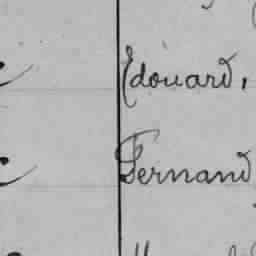 Edouard,
Fernand